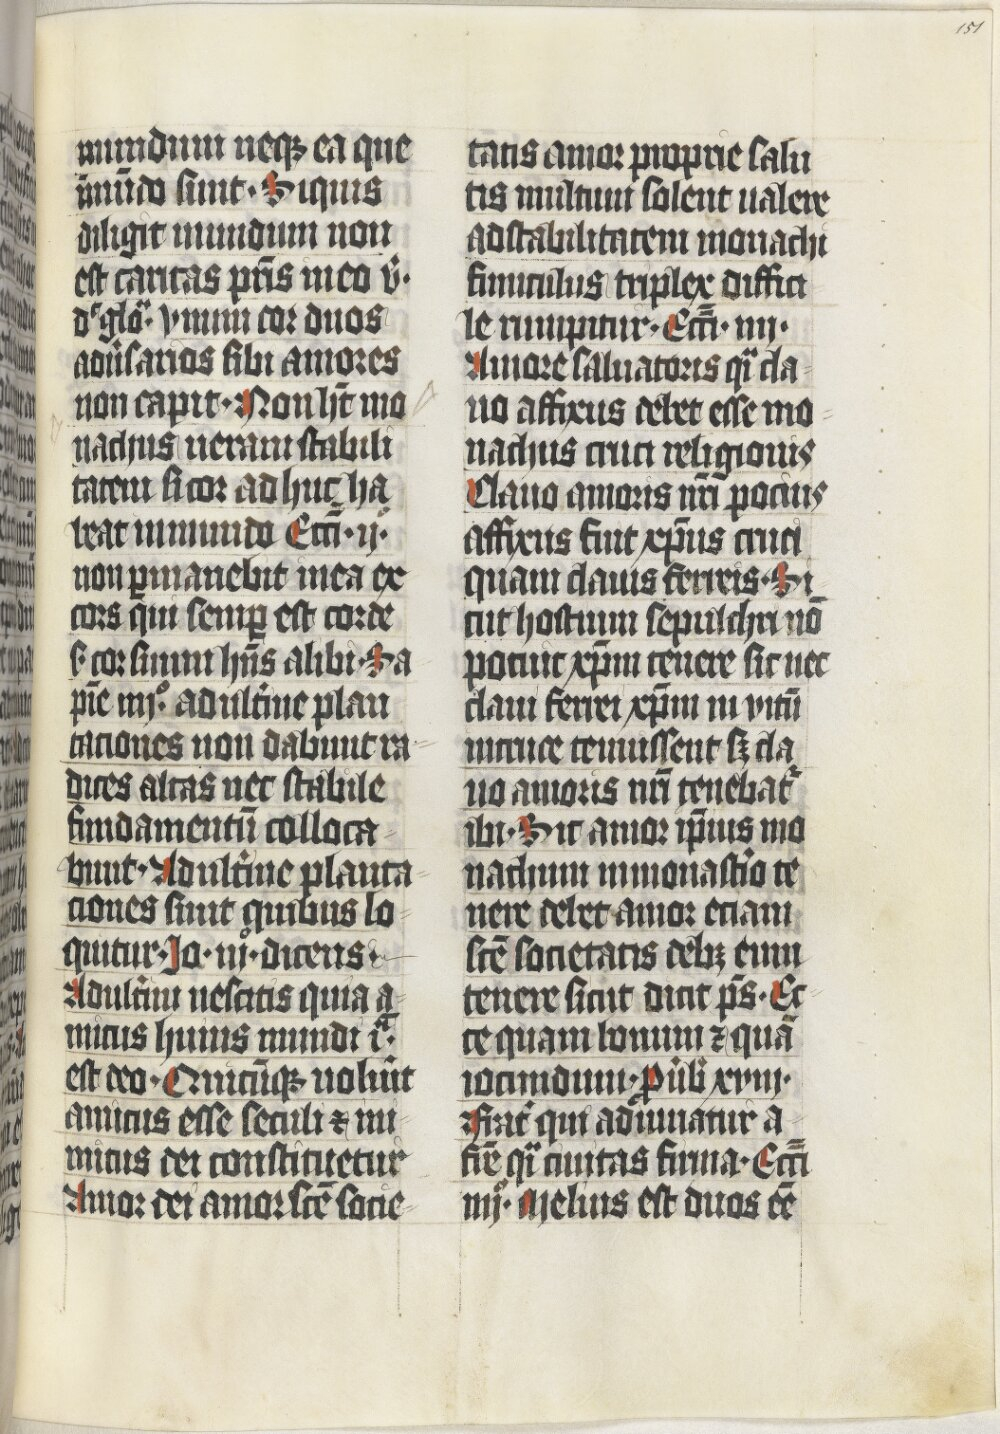 151
mundum neq₃ ea que
ī mūdo sunt· Siquis
diligit mundum non
est caritas pr̄is in eo v̄·
d̓ glo̅· vnum cor duos
adu̓sarios sibi amores
non capit· Non hꝫ mo
nachus ueram stabili
tatem si cor ad huc ha
beat in mundo Ecc̄i· ij·
non ꝑmanebit in ea ex
cors qui semꝑ est corde
s̓ cor suum hn̄s alibi· Sa
pīe iiij· adult̓ine plan
taciones non dabunt ra
dices altas nec stabile
fundamentū colloca
bunt· Adult̓ine planta
ciones sunt quibus lo
quitur· Ja· iij· dicens·
Adult̓ini nescitis quia a
micus huius mundi i
est deo· Quicūq₃ uolu̓it
amicus esse seculi ⁊ ini
micus dei constituetur
Amor dei amor sc̄e socie
tatis amor proprie salu
tis multum solent ualere
ad stabilitatem monachi
funiculus triplex diffici
le rumpitur· Ecc̄i· iiij·
Amore saluatoris qͣi cla
uo affixus debet esse mo
nachus cruci religionis
Clauo amoris nr̄i pocius
affixus fuit xp̄us cruci
quam clauis ferreis· Si
cut hostium sepulchri nō
potuit xp̄m tenere sic nec
claui ferrei xp̄m in vitū
in cruce tenuissent sꝫ cla
uo amoris nr̄i tenebat᷑
ibi· Sic amor ip̄ius mo
nachum in monast̓io te
nere debet amor eciam
sc̄e societatis debꝫ eum
tenere sicut dicit p̄s· Ec
ce quam bonum ⁊ quā
iocundum· ꝓu̓b̓ xviij·
Frat̓ qui adiuuatur a
fr̄e qͣi ciuitas firma· Ecc̄i
iiij· Melius est duos eē